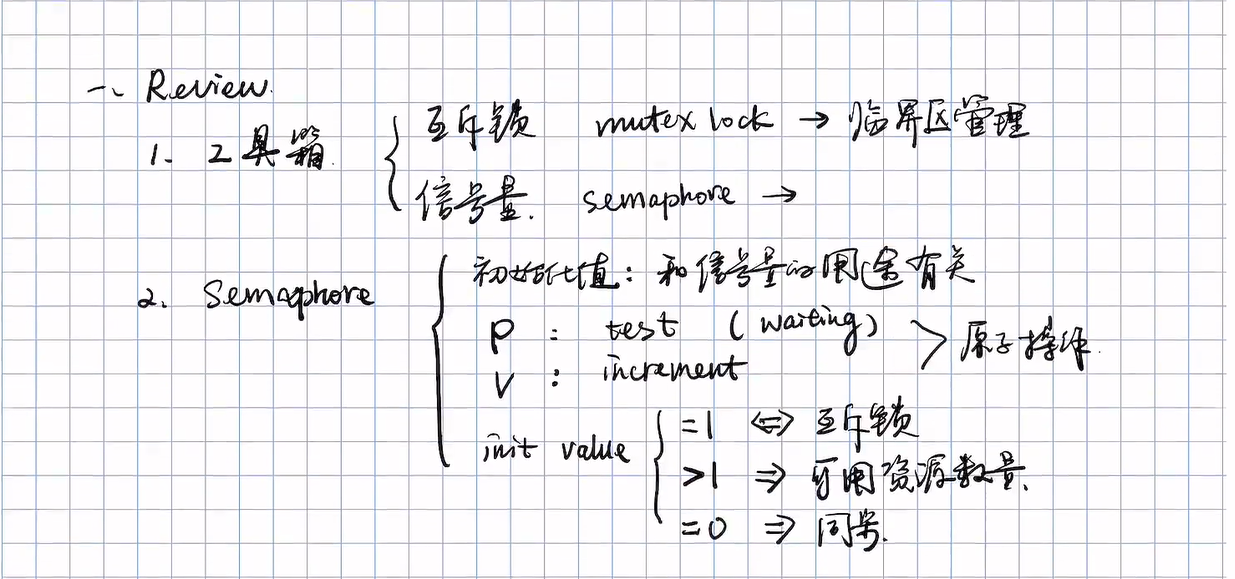 一、Review.
1、工具箱. { 互斥锁 mutex lock → 临界区管理
信号量. semaphore →
2、Semaphore { 初始化值：和信号量的用途有关
P : test (waiting) > 原子操作.
V : increment
init value { =1 ⇔ 互斥锁
>1 ⇒ 可用资源数量.
=0 ⇒ 同步.